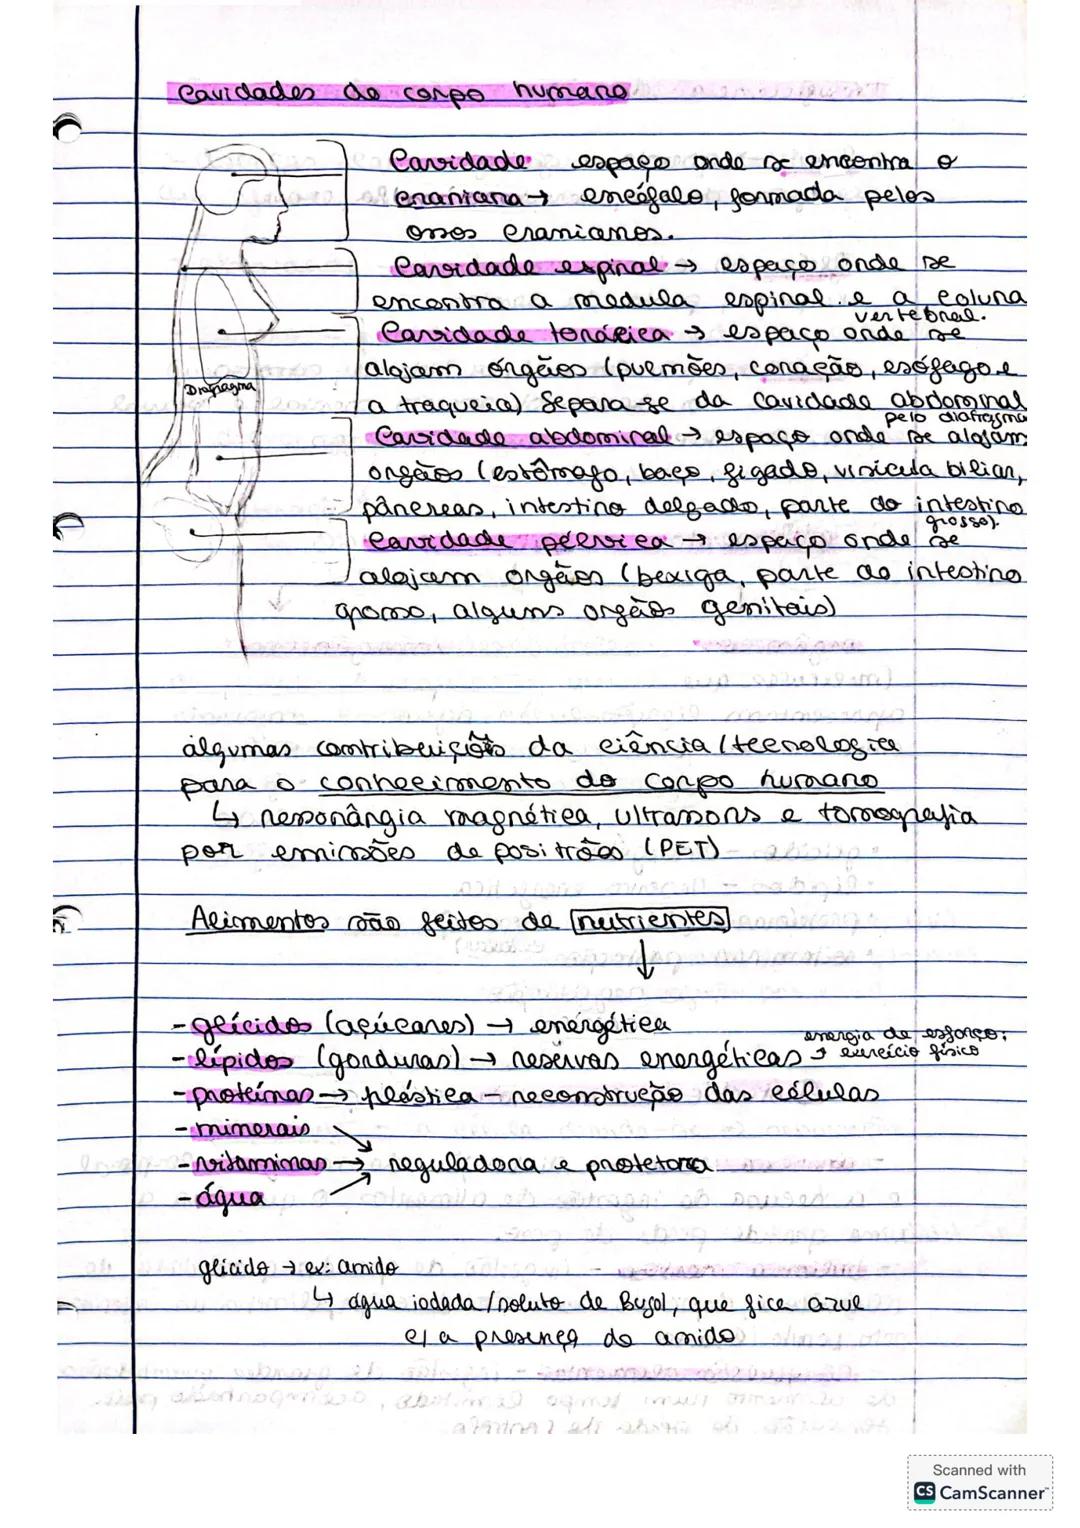 Cavidades do corpo humano
Cavidade espaço onde se encontra o
craniana → encéfalo, formada pelos
ossos cranianos.
Cavidade espinal → espaço onde se
encontra a medula espinal e a coluna
vertebral.
Cavidade torácica → espaço onde se
alojam órgãos (pulmões, coração, esófago e
Diafragma
a traqueia) Separa-se da cavidade abdominal
pelo diafragma
Cavidade abdominal → espaço onde se alojam
orgãos (estômago, baço, fígado, visícula biliar,
pâncreas, intestino delgado, parte do intestino
grosso).
Cavidade pélvica → espaço onde se
alojam orgãos (bexiga, parte do intestino
grosso, alguns orgãos genitais)
algumas contribuições da ciência/tecnologia
para o conhecimento do corpo humano
↳ ressonângia magnética, ultrassons e tomografia
por emissões de positrões (PET)
Alimentos são feitos de nutrientes
- glícidos (açúcares) → energética
energia de esforço:
- lípidos (gorduras) → reservas energéticas → exercício físico
- proteínas → plástica - reconstrução das células
- minerais
- vitaminas → reguladora e protetora
- água
glícido → ex: amido
↳ água iodada/soluto de lugol, que fica azul
c/ a presença do amido
Scanned with
CS CamScanner